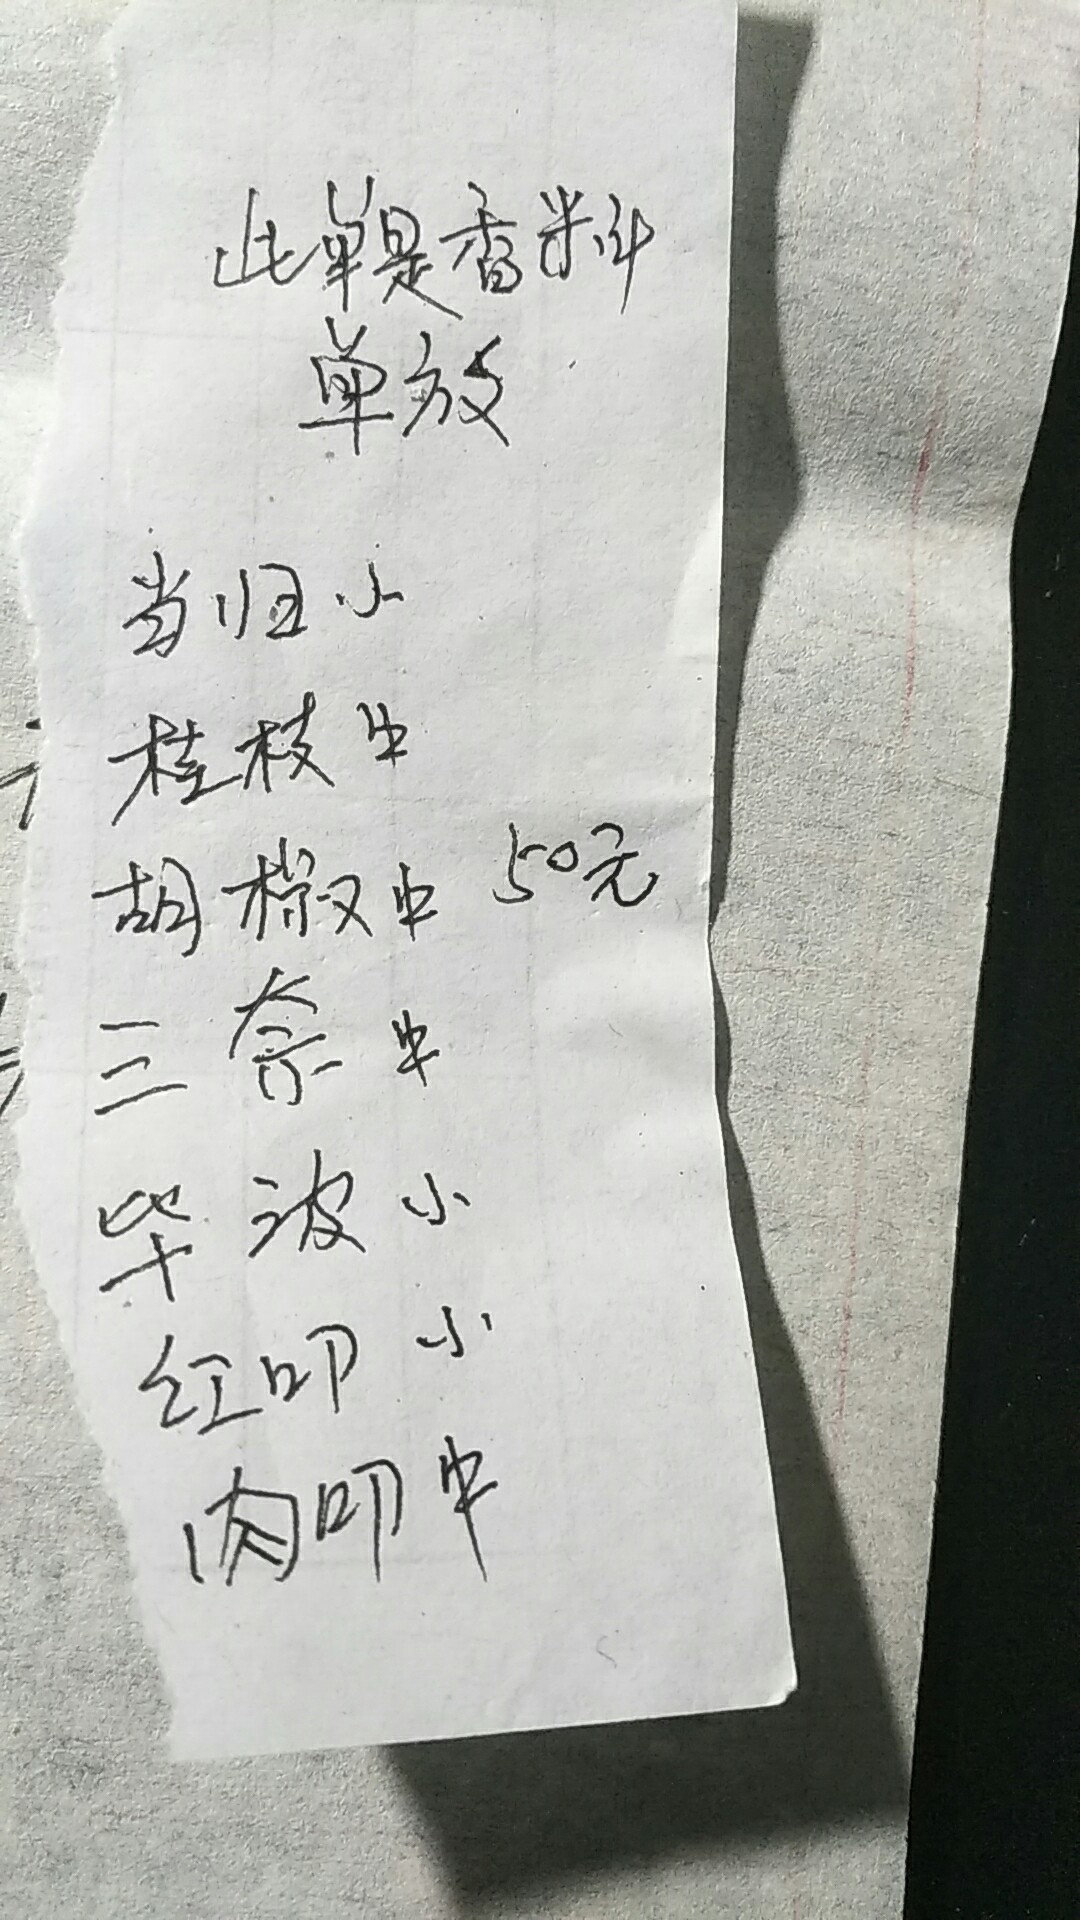 此单是香料
单放
当归 小
桂枝 中
胡椒 中 50元
三奈 中
毕波 小
红叩 小
肉叩 中